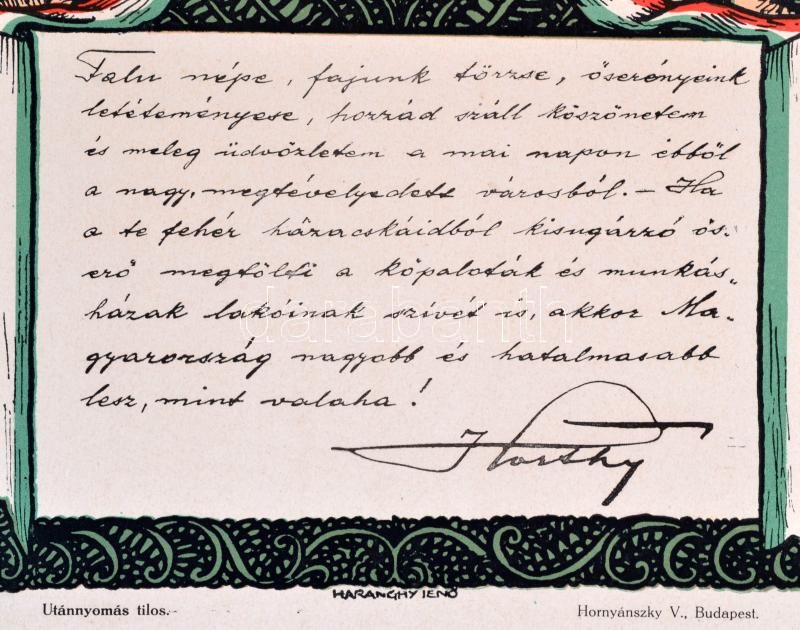 Falu népe, fajunk törzse, őserényeink
letéteményese, hozzád száll köszönetem
és meleg üdvözletem a mai napon ebből
a nagy, megtévelyedett városból. – Ha
a te fehér házacskáidból kisugárzó ős-
erő megtölti a kőpaloták és munkás-
házak lakóinak szivét is, akkor Ma-
gyarország nagyobb és hatalmasabb
lesz, mint valaha!
Horthy
darabanth
HARANGHY JENŐ
Utánnyomás tilos.
Hornyánszky V., Budapest.